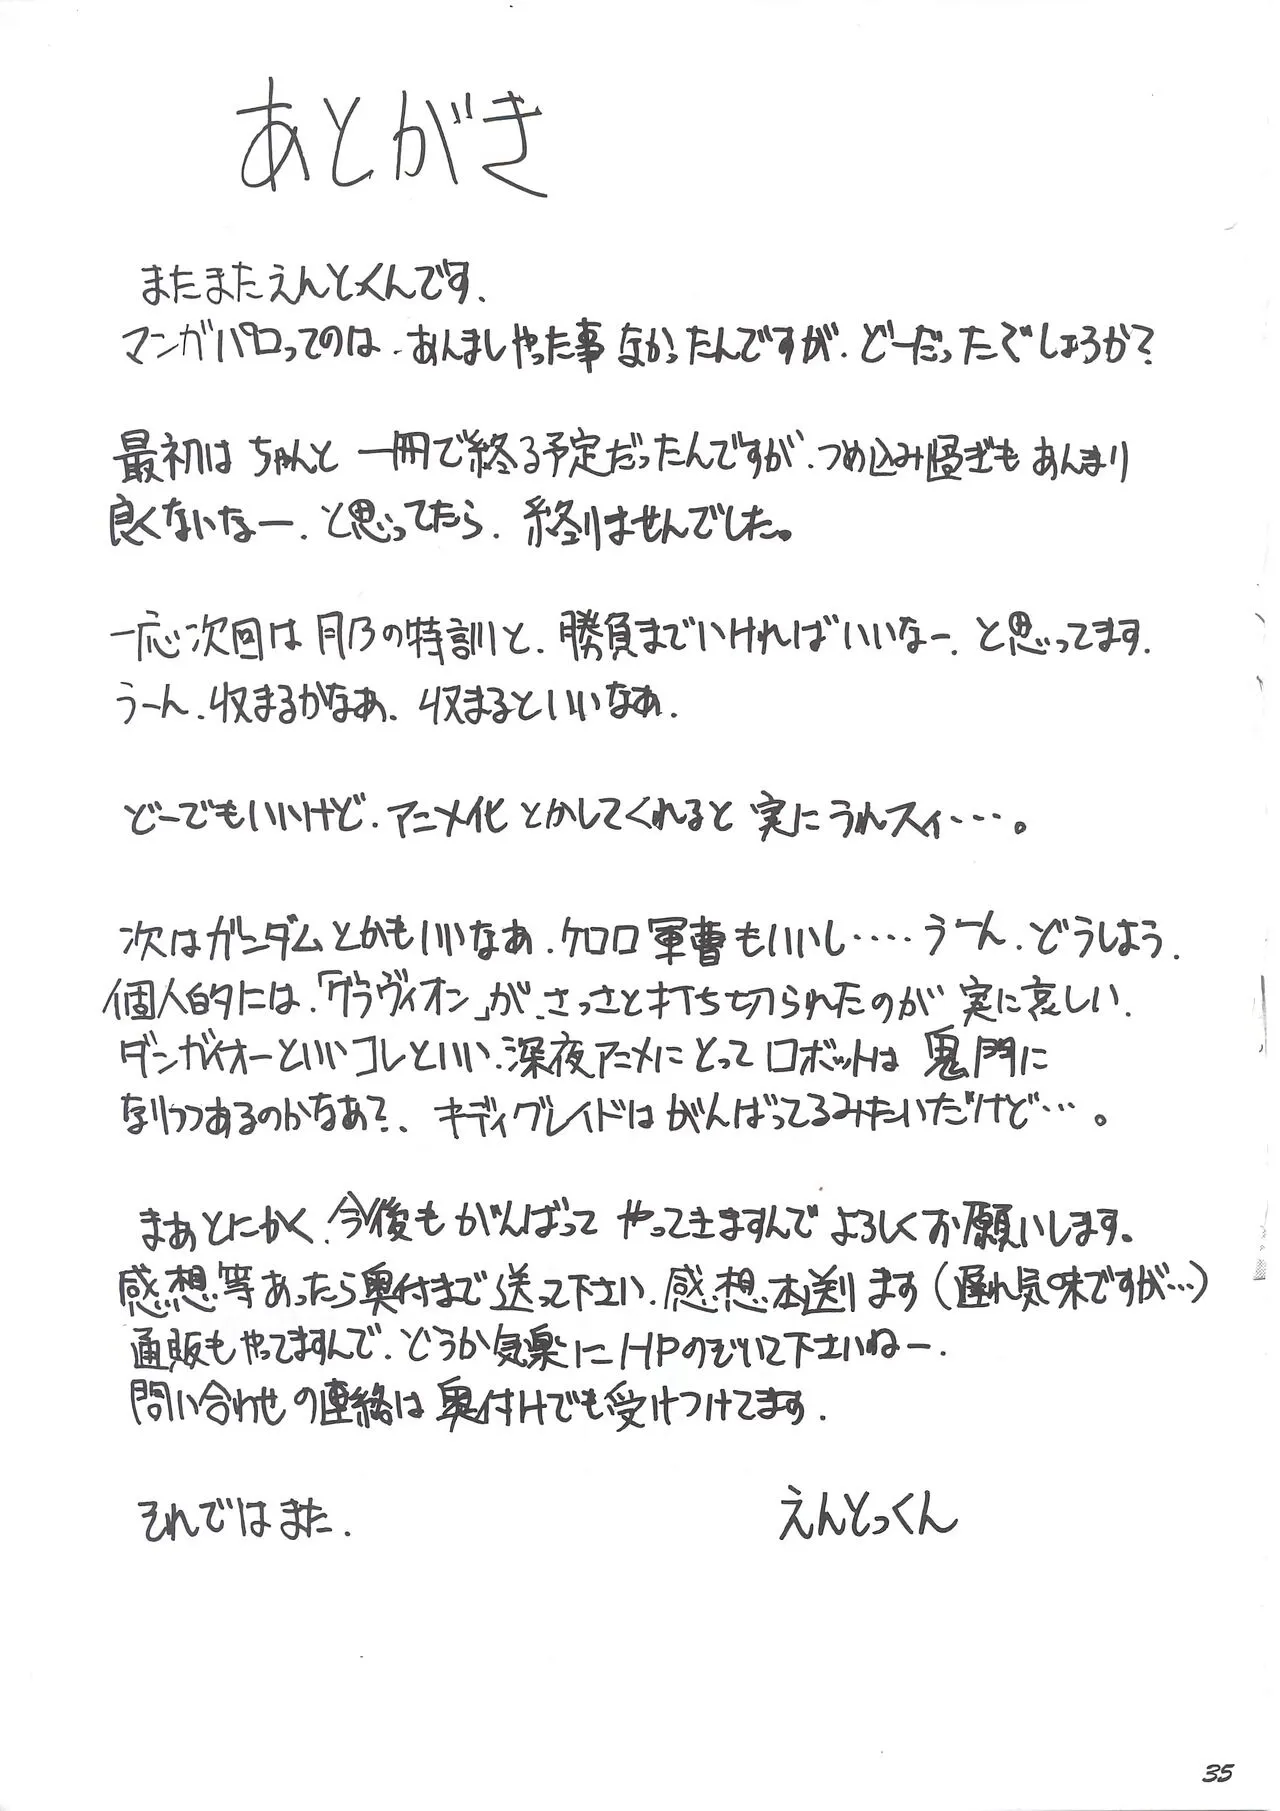 あとがき
またまたえんとっくんです.
マンガパロってのは、あんましやった事なかったんですが、どーだったでしょうか?
最初はちゃんと一冊で終る予定だったんですが、つめ込み過ぎもあんまり
良くないなー、と思ってたら、終りませんでした。
一応次回は月乃の特訓と、勝負までいければいいなー、と思ってます.
うーん、収まるかなあ、収まるといいなあ.
どーでもいいけど、アニメ化とかしてくれると実にうれスィ・・・・。
次はガンダムとかもいいなあ、ケロロ軍曹もいいし・・・・うーん、どうしよう.
個人的には、「グラヴィオン」が、さっさと打ち切られたのが実に哀しい.
ダンガイオーといいコレといい、深夜アニメにとってロボットは鬼門に
なりつつあるのかなあ?、キディグレイドはがんばってるみたいだけど・・・。
まあとにかく、今後もがんばってやってきますんでよろしくお願いします。
感想等あったら奥付まで送って下さい、感想本送ります(遅れ気味ですが・・・)
通販もやってますんで、どうか気楽にHPのぞいて下さいねー.
問い合わせの連絡は奥付けでも受けつけてます.
それではまた.
えんとっくん
35